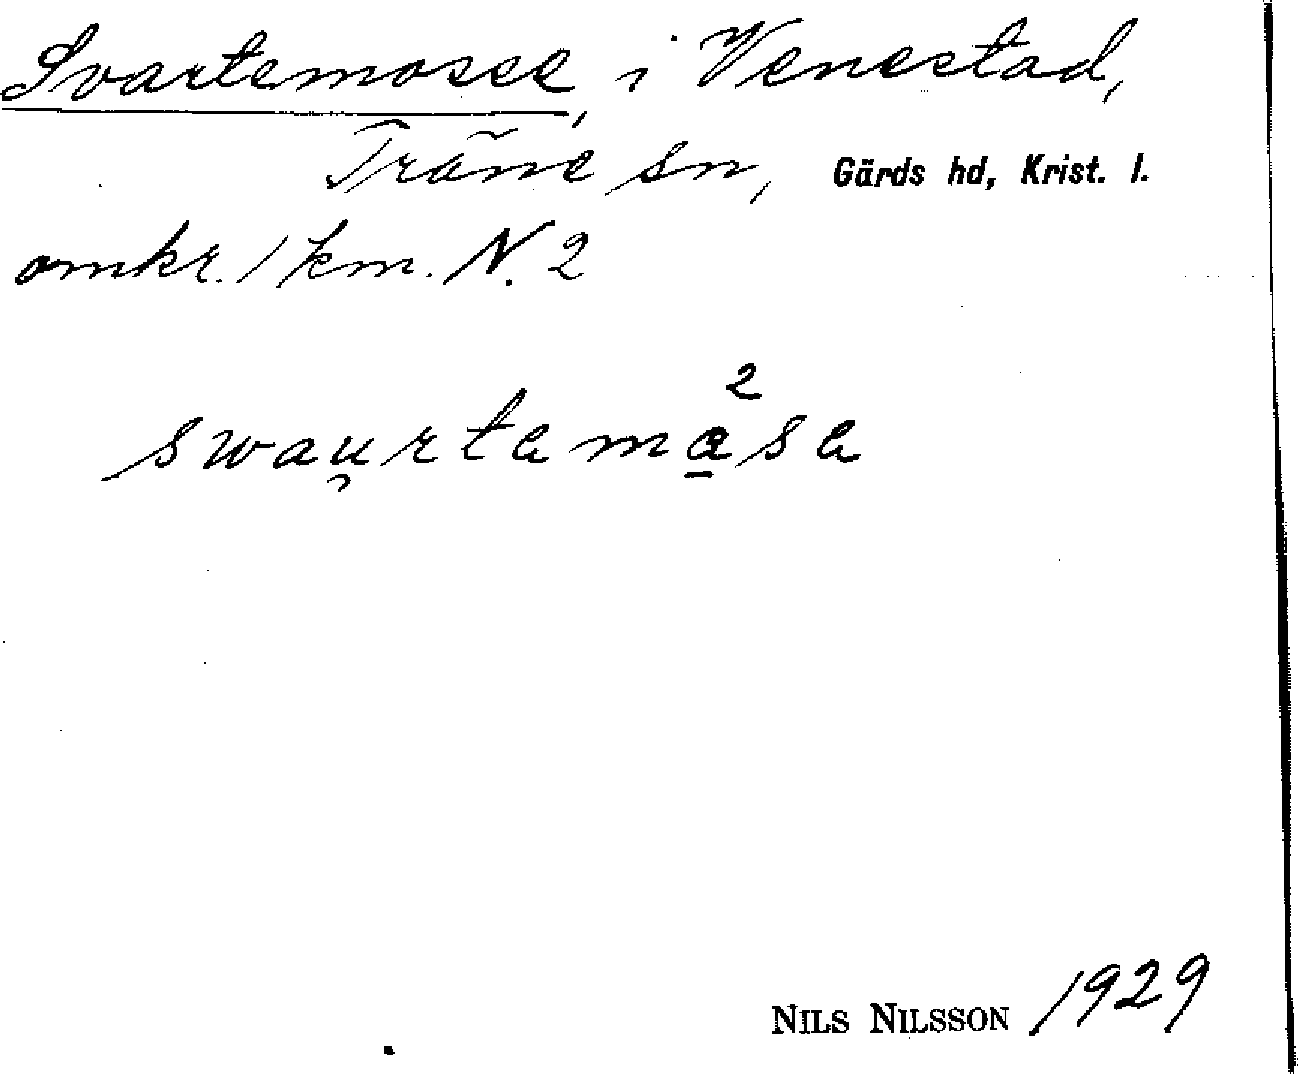 Svartemosse, i Venestad,
Träne sn, Gärds hd, Krist. l.
omkr. 1 km. N. 2
2
swau̯rtamåsa
NILS NILSSON 1929